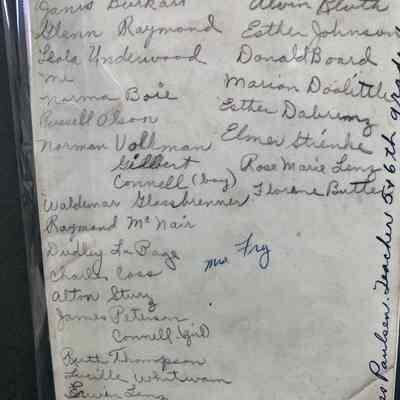 Janis Burkart
Glenn Raymond
Leola Underwood
Me
Norma Boie
Russell Olson
Norman Vollman
Gilbert
Connell (boy)
Waldemar Glassbrenner
Raymond McNair
Dudley LaPage
Charles Coss
Alton Sturz
James Peterson
Connell (girl
Ruth Thompson
Lucille Whitevain
Erwin Lenz
Alvin Bluth
Esther Johnson
Donald Board
Marion Doolittle
Esther Dabrenz
Elmer Strenke
Rose Marie Lenz
Florene Butter
Mrs Fry
Paulsen. Teacher 5 & 6th grade